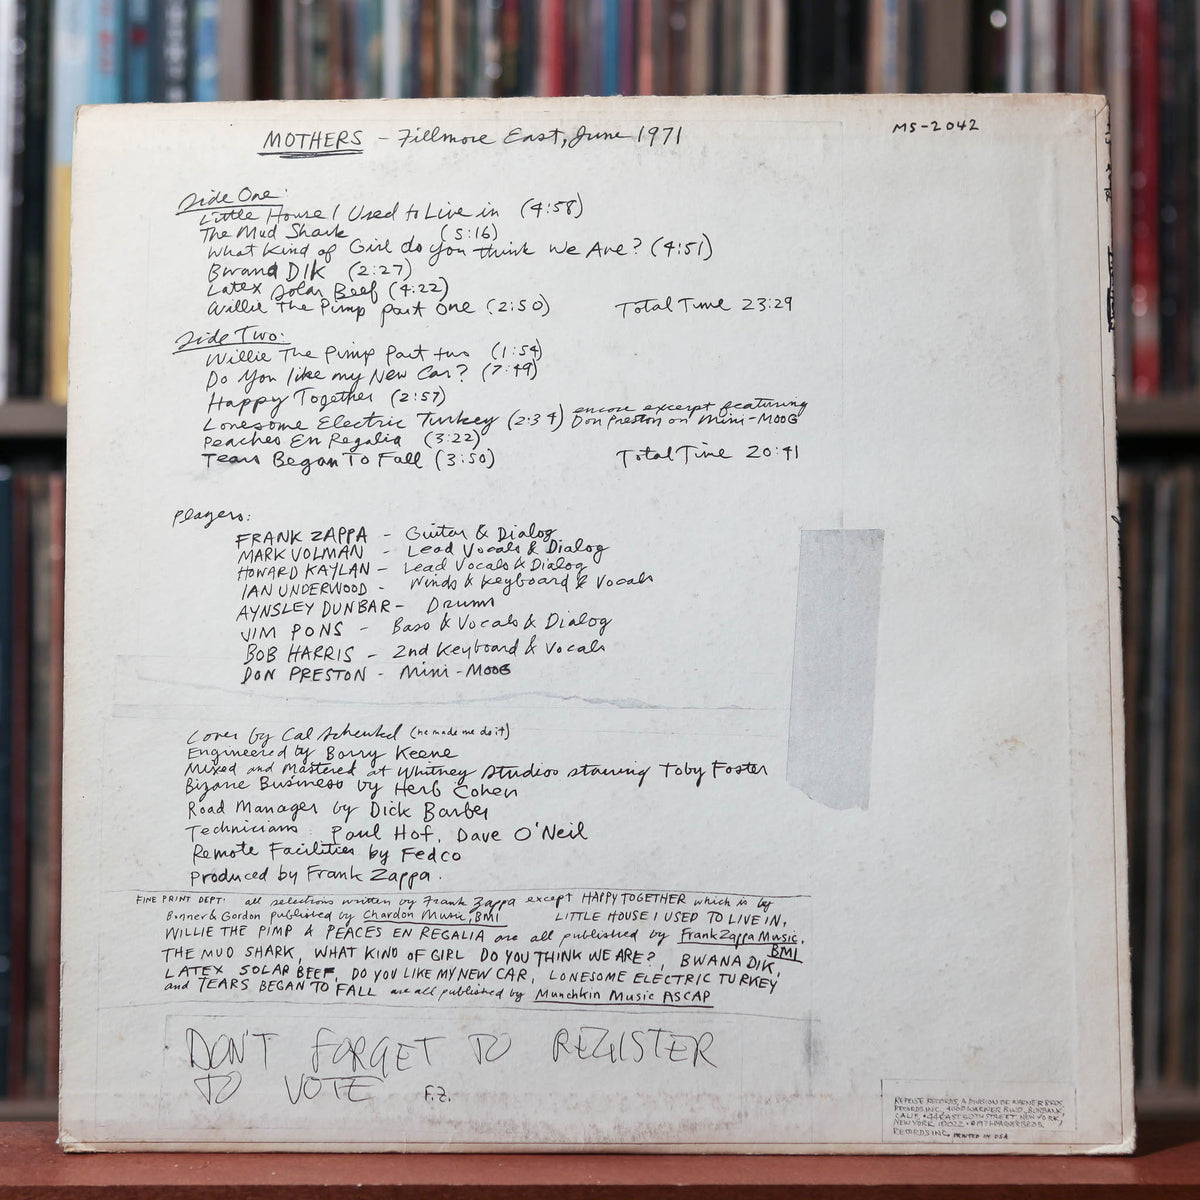 MOTHERS - Fillmore East, June 1971
MS-2042
Side One:
Little House I Used to Live in (4:58)
The Mud Shark (5:16)
What Kind of Girl do you think We Are? (4:51)
Bwana DIK (2:27)
Latex Solar Beef (4:22)
Willie The Pimp part One (2:50) Total Time 23:29
Side Two:
Willie The Pimp Part two (1:54)
Do You like my New Car? (7:49)
Happy Together (2:57)
Lonesome Electric Turkey (2:34) encore excerpt featuring
Don Preston on Mini-MOOG
Peaches En Regalia (3:22)
Tears Began To Fall (3:50) Total Time 20:41
Players:
FRANK ZAPPA - Guitar & Dialog
MARK VOLMAN - Lead Vocals & Dialog
HOWARD KAYLAN - Lead Vocals & Dialog
IAN UNDERWOOD - Winds & Keyboard & Vocals
AYNSLEY DUNBAR - Drums
JIM PONS - Bass & Vocals & Dialog
BOB HARRIS - 2nd Keyboard & Vocals
DON PRESTON - Mini-MOOG
Cover by Cal Schenkel (he made me do it)
Engineered by Barry Keene
Mixed and Mastered at Whitney Studios starring Toby Foster
Bizarre Business by Herb Cohen
Road Manager by Dick Barber
Technicians: Paul Hof, Dave O'Neil
Remote Facilities by Fedco
Produced by Frank Zappa.
FINE PRINT DEPT: all selections written by Frank Zappa except HAPPY TOGETHER which is by
Bonner & Gordon published by Chardon Music, BMI LITTLE HOUSE I USED TO LIVE IN,
WILLIE THE PIMP & PEACES EN REGALIA are all published by Frank Zappa Music,
BMI
THE MUD SHARK, WHAT KIND OF GIRL DO YOU THINK WE ARE?, BWANA DIK,
LATEX SOLAR BEEF, DO YOU LIKE MY NEW CAR, LONESOME ELECTRIC TURKEY
and TEARS BEGAN TO FALL are all published by Munchkin Music ASCAP
DON'T FORGET TO REGISTER
TO VOTE F.Z.
REPRISE RECORDS, A DIVISION OF WARNER BROS.
RECORDS INC., 4000 WARNER BLVD., BURBANK,
CALIF. • 44 EAST 50TH STREET, NEW YORK,
NEW YORK 10022 • © 1971 WARNER BROS.
RECORDS INC. PRINTED IN USA